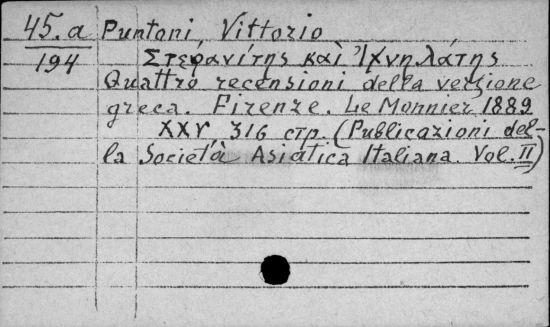 45.a Puntoni, Vittorio
194 Στεφανίτης καὶ Ἰχνηλάτης
Quattro recensioni della versione
greca. Firenze. Le Monnier 1889.
XXV, 316 стр. (Publicazioni del-
la Società Asiatica Italiana. Vol. II)